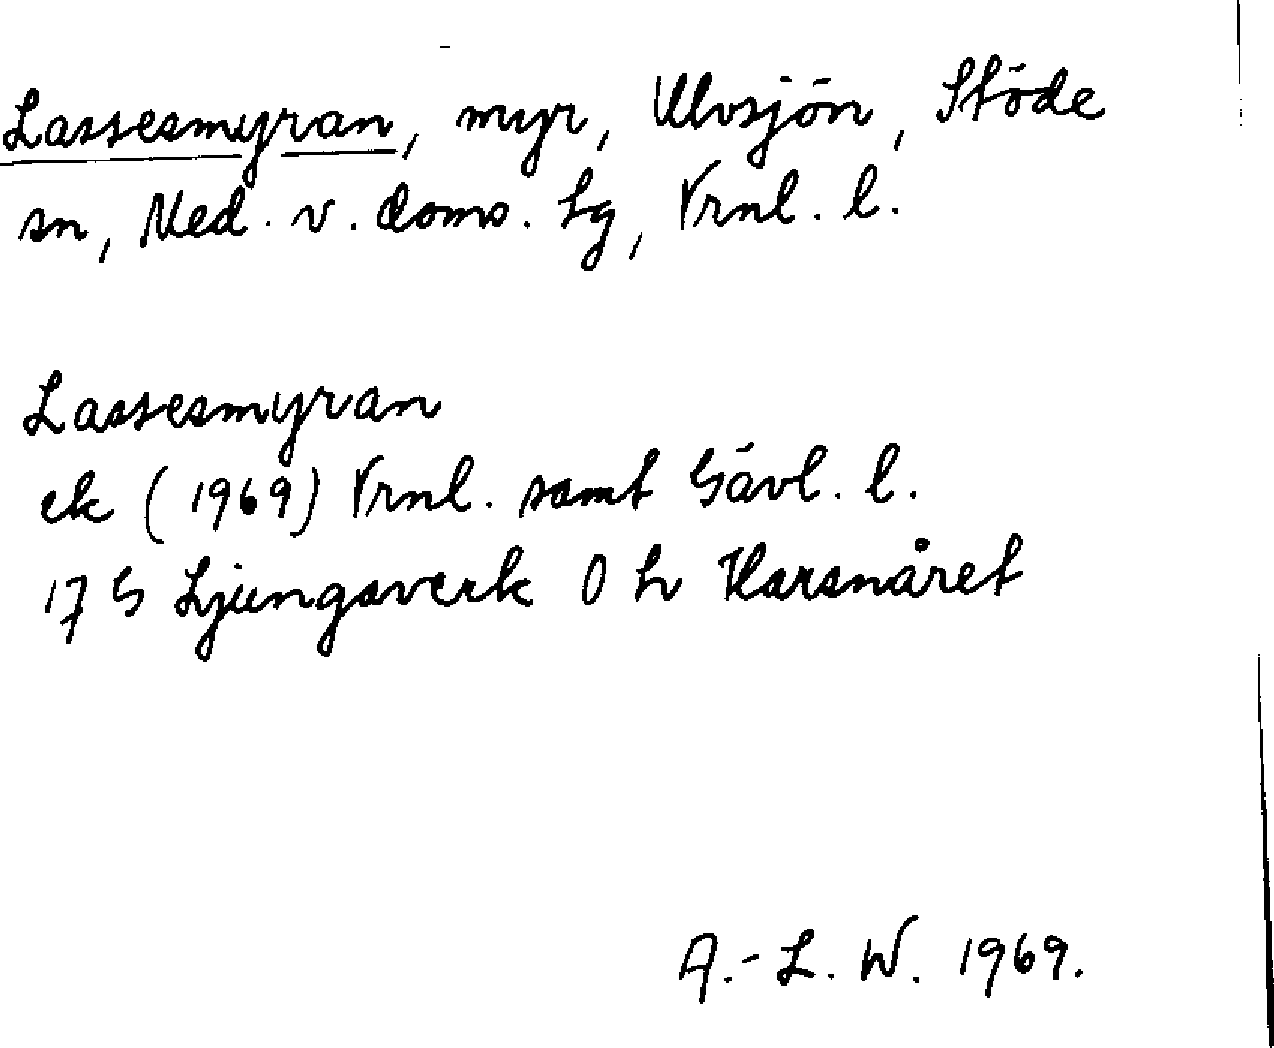 Lassesmyran, myr, Ulvsjön, Stöde
sn, Med. v. doms. tg, Vrnl. l.
Lassesmyran
ek (1969) Vrnl. samt Gävl. l.
17 G Ljungaverk O h Harsnåret
A.-L. W. 1969.